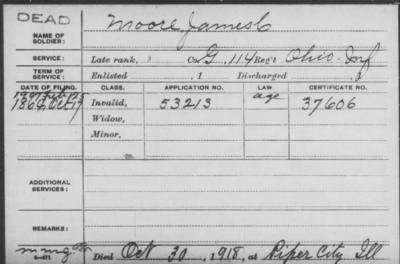 DEAD
NAME OF SOLDIER: Moore, James C
SERVICE: Late rank, Co. G, 114 Reg't Ohio Inf
TERM OF SERVICE: Enlisted , 1 Discharged , 1
DATE OF FILING. CLASS. APPLICATION NO. LAW. CERTIFICATE NO.
1907 Feb 25 age
1864 Oct 17 Invalid, 53213 37606
Widow,
Minor,
ADDITIONAL SERVICES:
REMARKS:
Died Oct 30, 1918, at Piper City Ill